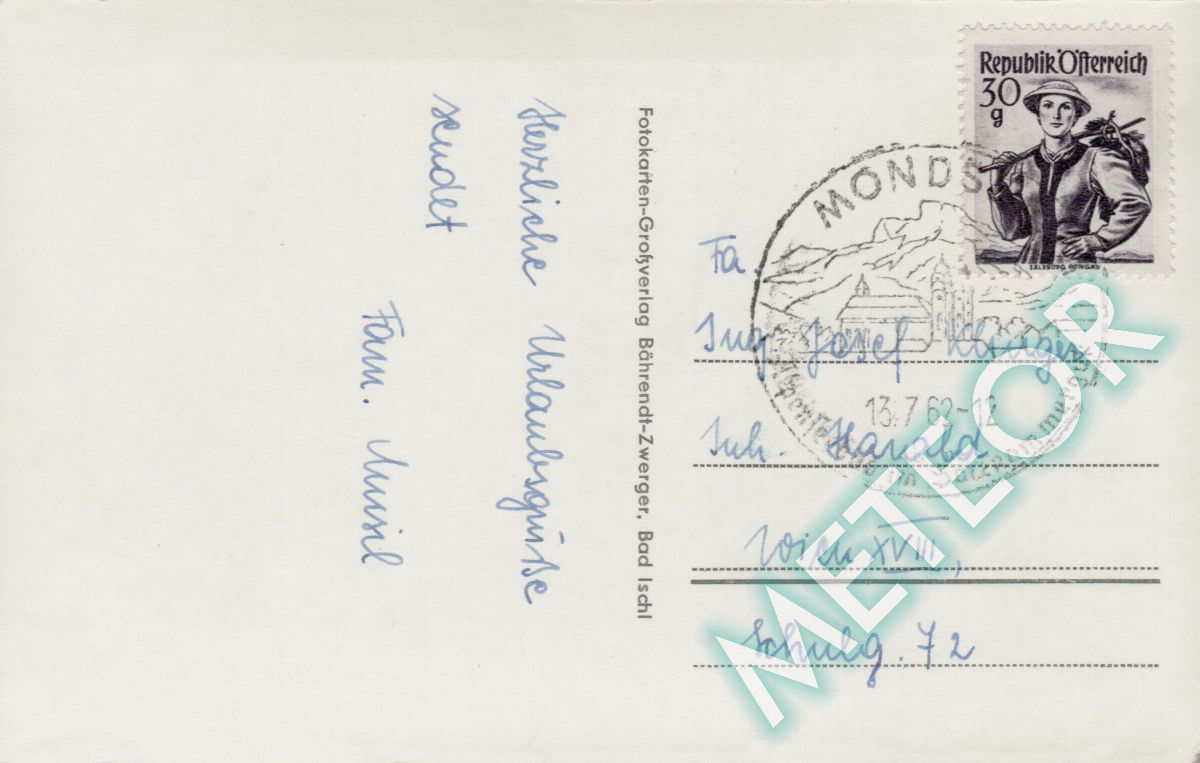 Herzliche Urlaubsgrüße
sendet
Fam. Musil
Fotokarten-Großverlag Bährendt-Zwerger, Bad Ischl
Republik Österreich
30
g
SALZBURG PONGAU
MONDS
13.7.62-12
Fa.
Ing. Josef
Inh. Harald
Wien XVIII,
Schulg. 72
METEOR